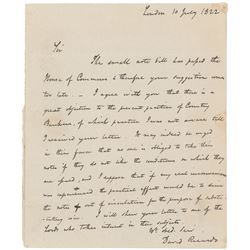 London 10 July 1822
Sir
The small note bill has passed the
House of Commons & therefore your suggestion came
too late. – I agree with you that there is a
great objection to the present practice of Country
Bankers, of which practice I was not aware till
I received your letter. It may indeed be urged
in their favor that no one is obliged to take their
notes if they do not like the conditions on which they
are issued, and I suppose that if any real inconvenience
was experienced the practical effect would be to
the notes out of circulation for the purpose of substi-
tuting coin. I will shew your letter to one of the
Lords who takes interest in these subjects
Yr Obed. Serv
David Ricardo